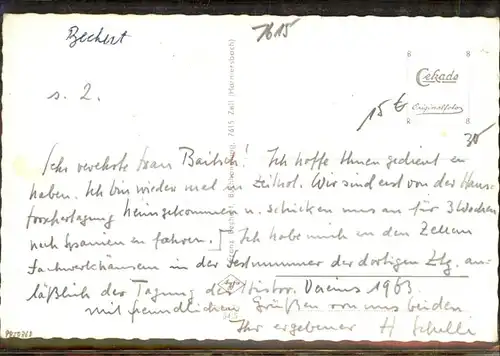 Bechert
7615
s. 2.
Cekade
Originalfoto
15 t
30
Franz Bechert, Buchhandlung, 7615 Zell (Harmersbach)
Sehr verehrte Frau Baitsch! Ich hoffe Ihnen gedient zu
haben. Ich bin wieder mal in Zeitnot. Wir sind erst von der Haus
forschertagung heimgekommen u. schicken uns an für 3 Wochen
nach Spanien zu fahren. Ich habe mich in den Zeller
Fachwerkhäusern in der Festnummer der dortigen Ztg. an-
läßlich der Tagung des Histor. Vereins 1963
mit freundlichen Grüßen von uns beiden
Ihr ergebener H Schilli